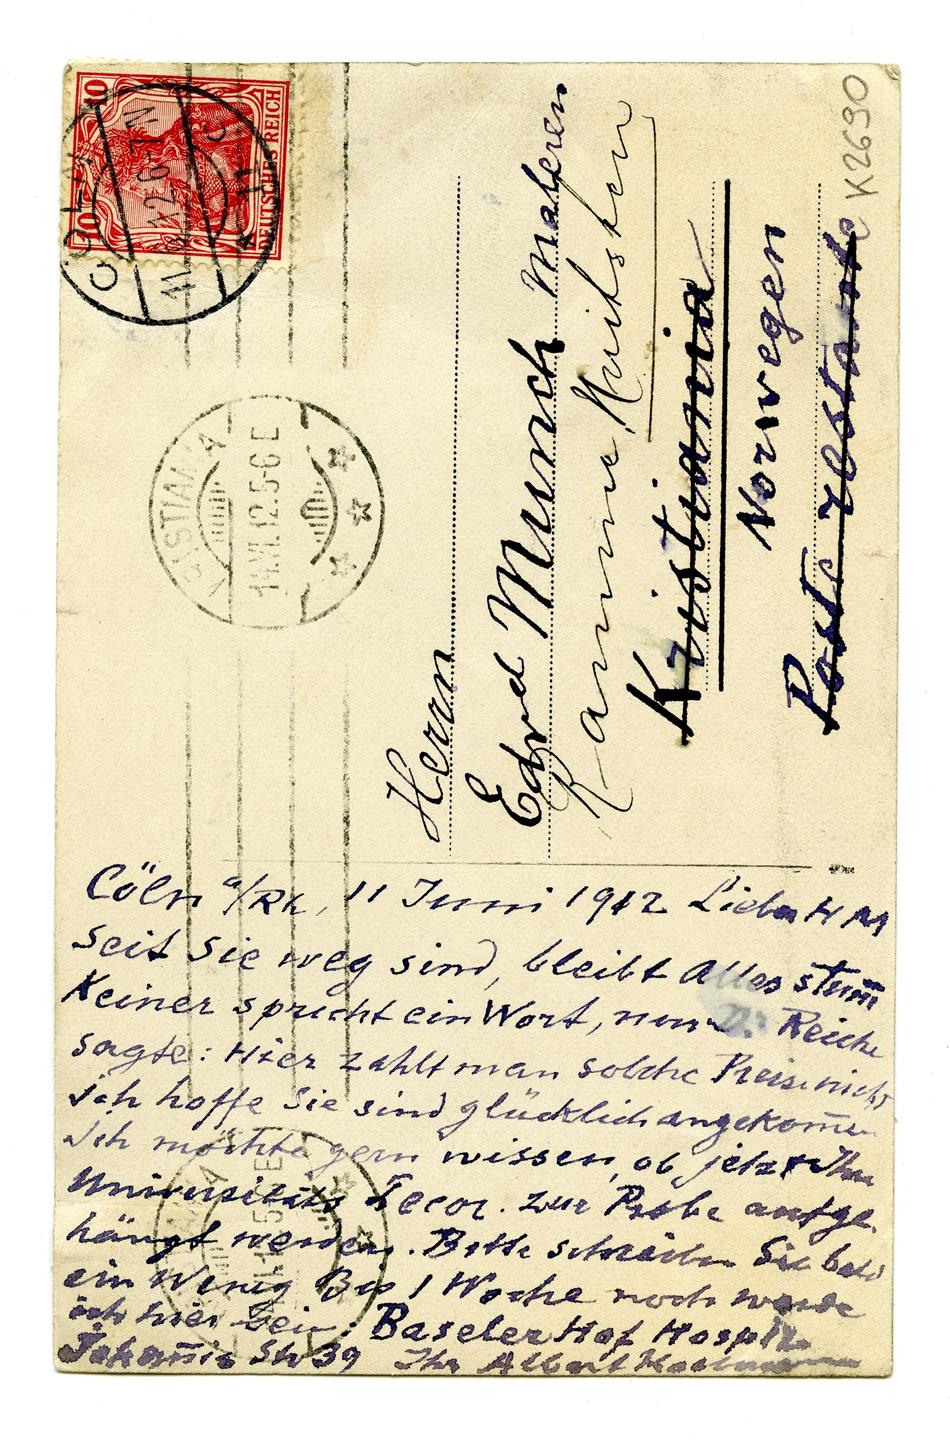 K2690
10
10
DEUTSCHES REICH
CÖLN
11.6.12.6-7N
KRISTIANIA
14.VI.12.5-6E
Herrn
Edvd Munch Maleren
Kristiania
Norwegen
Poste restante
Cöln a/Rh, 11 Juni 1912 Lieber H M
seit Sie weg sind, bleibt Alles stum̄
Keiner spricht ein Wort, nur Dr Reiche
sagte: Hier zahlt man solche Preise nicht
ich hoffe Sie sind glücklich angekom̄en
ich möchte gern wissen, ob jetzt Ihre
Universitäts Decor. zur Probe aufge
hängt werden. Bitte schreiben Sie bald
ein Wenig Bis 1 Woche noch werde
ich hier sein. Baseler Hof Hospiz
Johan̄is Str 39 Ihr Albert Kollmann